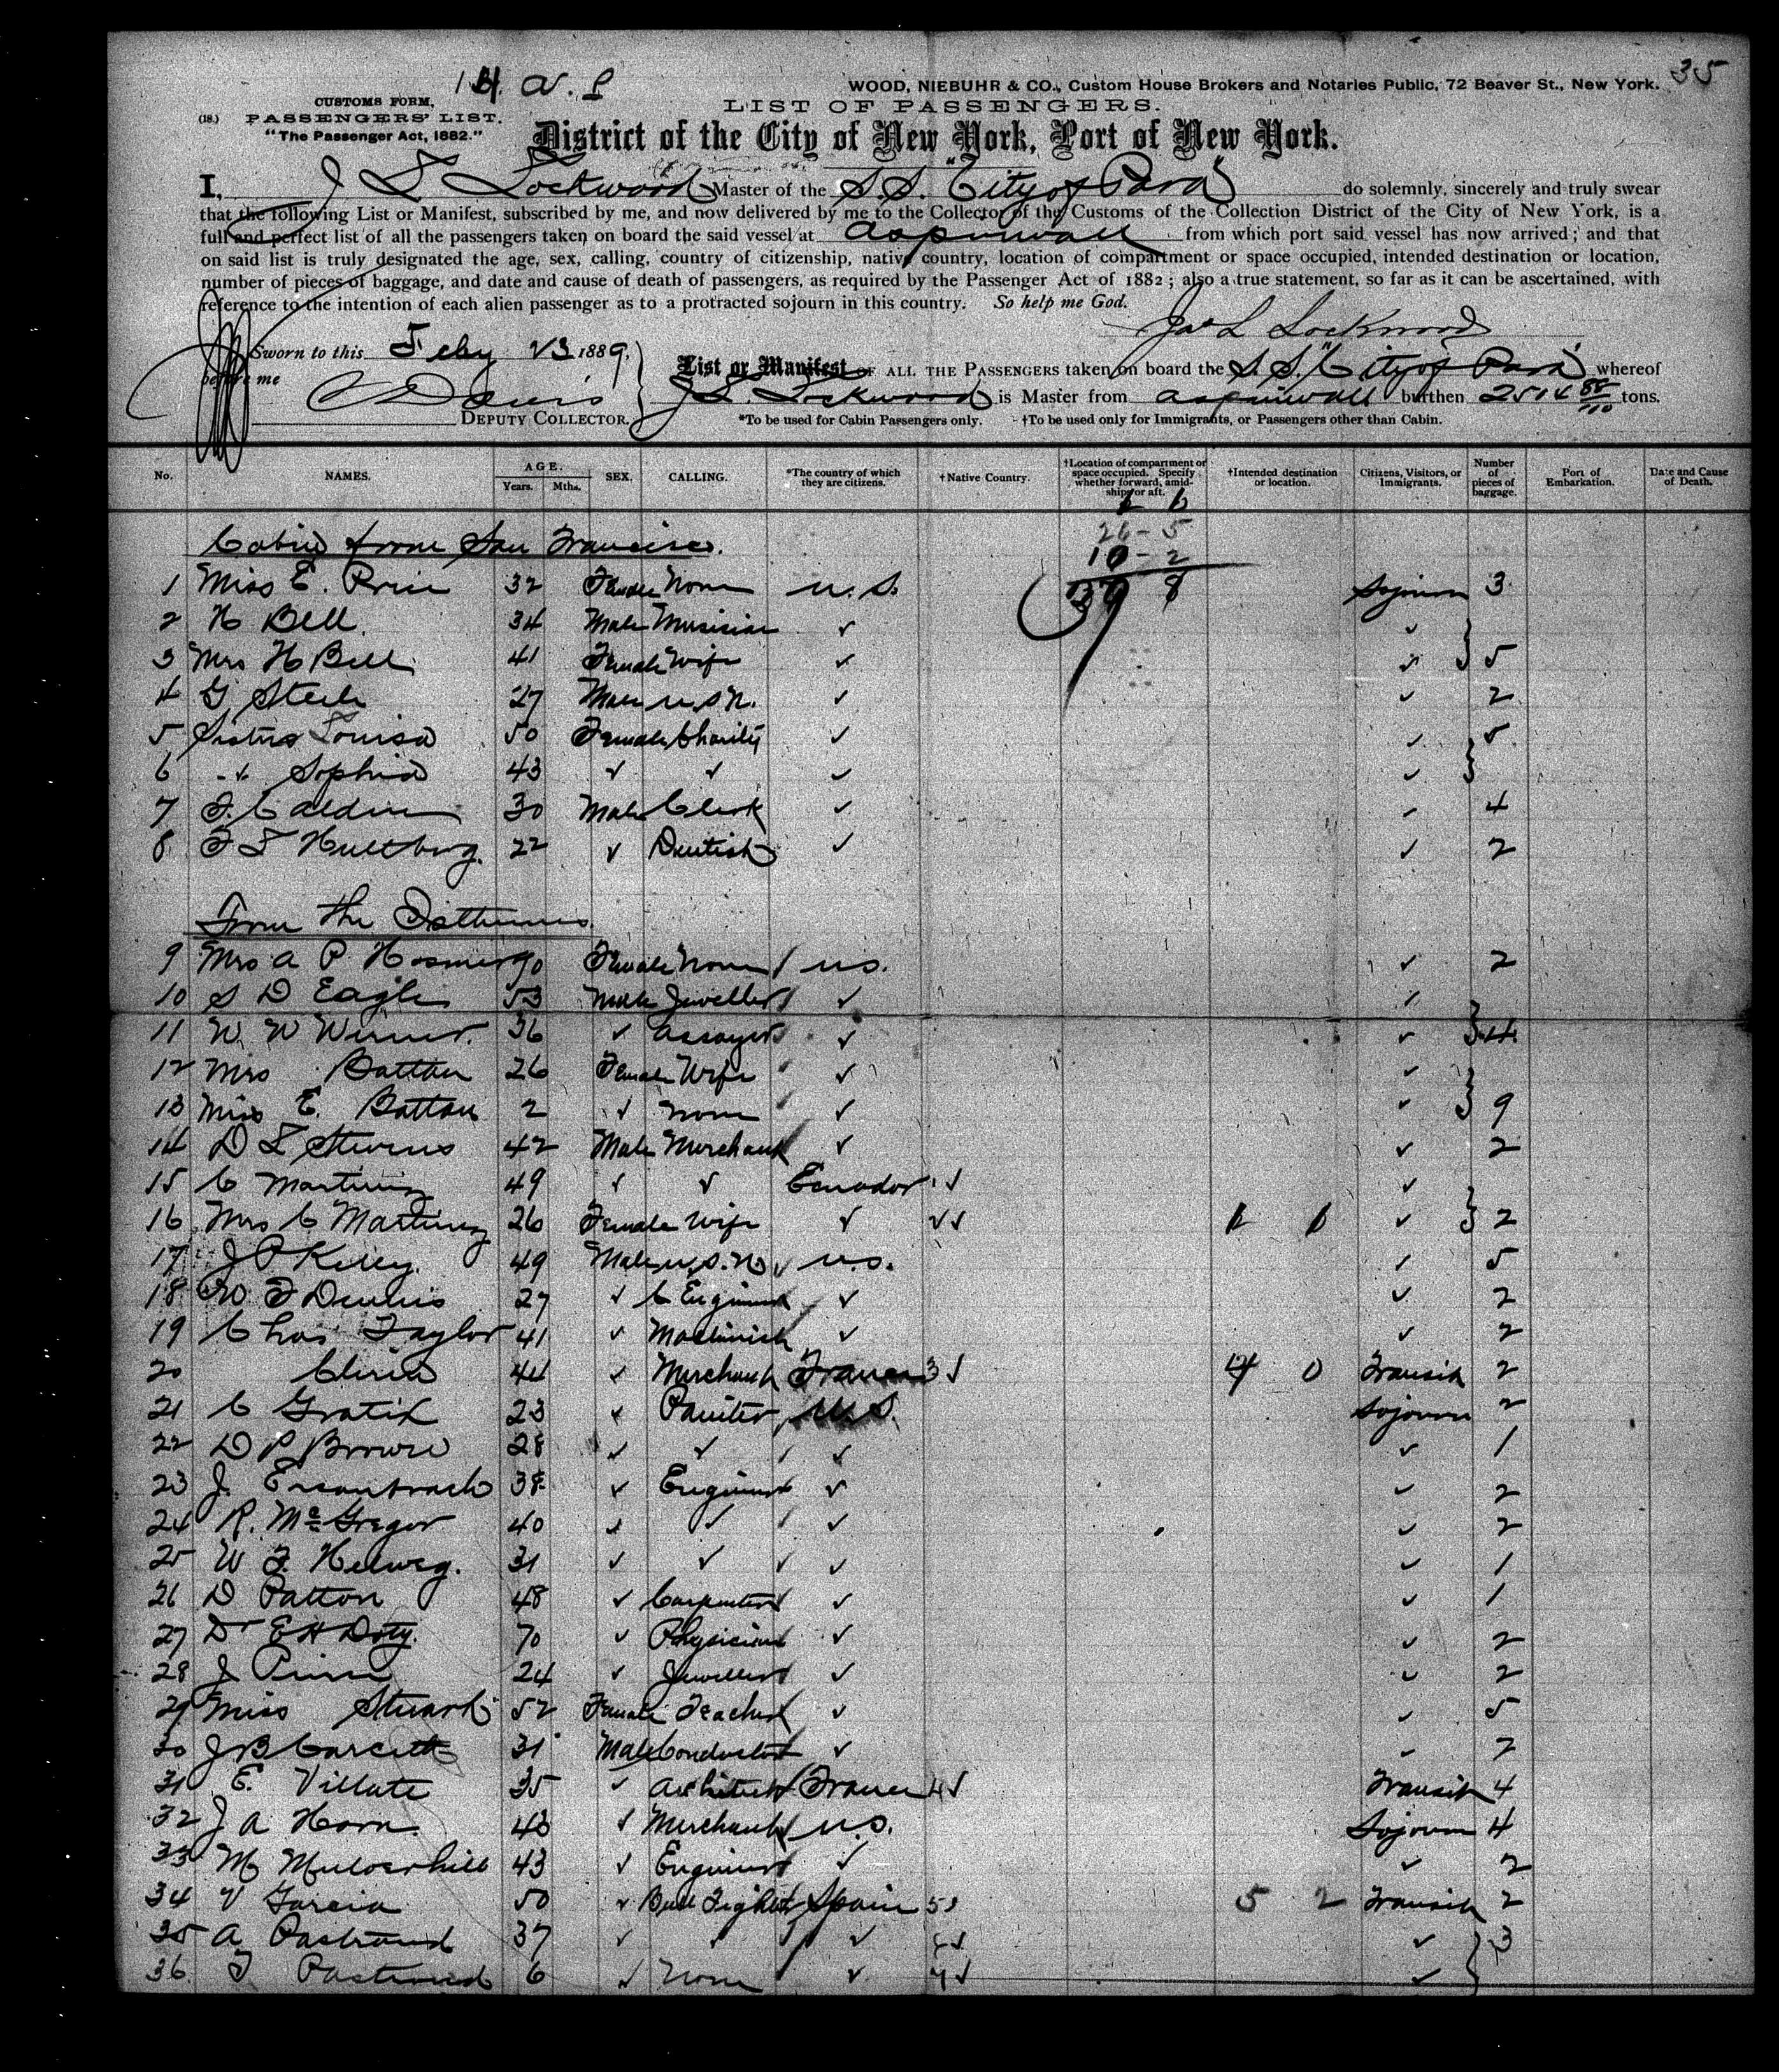 14. N. P
35
WOOD, NIEBUHR & CO., Custom House Brokers and Notaries Public, 72 Beaver St., New York.
CUSTOMS FORM,
(18.) PASSENGERS' LIST.
"The Passenger Act, 1882."
LIST OF PASSENGERS.
District of the City of New York, Port of New York.
I, J L Lockwood Master of the S.S. "City of Para" do solemnly, sincerely and truly swear
that the following List or Manifest, subscribed by me, and now delivered by me to the Collector of the Customs of the Collection District of the City of New York, is a
full and perfect list of all the passengers taken on board the said vessel at Aspinwall from which port said vessel has now arrived; and that
on said list is truly designated the age, sex, calling, country of citizenship, native country, location of compartment or space occupied, intended destination or location,
number of pieces of baggage, and date and cause of death of passengers, as required by the Passenger Act of 1882; also a true statement, so far as it can be ascertained, with
reference to the intention of each alien passenger as to a protracted sojourn in this country. So help me God.
Jas L Lockwood
Sworn to this Feby 23 1889,
before me
DEPUTY COLLECTOR.
List or Manifest OF ALL THE PASSENGERS taken on board the S.S. "City of Para" whereof
J L Lockwood is Master from Aspinwall burthen 2514 88/100 tons.
*To be used for Cabin Passengers only. †To be used only for Immigrants, or Passengers other than Cabin.
No. NAMES. AGE. Years. Mths. SEX. CALLING. *The country of which they are citizens. †Native Country. †Location of compartment or space occupied. Specify whether forward, amidships or aft. †Intended destination or location. Citizens, Visitors, or Immigrants. Number of pieces of baggage. Port of Embarkation. Date and Cause of Death.
26 - 5
10 - 2
37 8
Cabin from San Francisco.
1 Miss E. Price 32 Female None U.S. Sojourn 3
2 H Bell 34 Male Musician ✓ ✓
3 Mrs H Bell 41 Female Wife ✓ ✓ 5
4 G Steele 27 Male U.S.N. ✓ ✓ 2
5 Sisters Louisa 50 Female Charity ✓ ✓ 5
6 ✓ Sophia 43 ✓ ✓ ✓ ✓
7 F. Caldin 30 Male Clerk ✓ ✓ 4
8 F L Hultburg 22 ✓ Dentist ✓ ✓ 2
From the Isthmus.
9 Mrs A P Hosmer 70 Female None U.S. ✓ 2
10 S D Eagle 53 Male Jeweller ✓ ✓
11 W. W Werner. 36 ✓ Assayer ✓ ✓ 4
12 Mrs Batton 26 Female Wife ✓ ✓
13 Miss E. Batton 2 ✓ None ✓ ✓ 9
14 D L Stevens 42 Male Merchant ✓ ✓ 2
15 C Martinez 49 ✓ ✓ Ecuador 1✓ ✓
16 Mrs C Martinez 26 Female Wife ✓ ✓✓ ✓ 2
17 J P Kelley. 49 Male U.S.N. U.S. ✓ 5
18 W F Dennis 27 ✓ C Engineer ✓ ✓ 2
19 Chas Taylor 41 ✓ Machinist ✓ ✓ 2
20 44 ✓ Merchant France 3✓ 4 0 Transit 2
21 C Gratix 23 ✓ Painter U.S. Sojourn 2
22 D P Brown 28 ✓ ✓ ✓ ✓ 1
23 J. 38 ✓ Engineer ✓ ✓ 2
24 R. McGregor 40 ✓ ✓ ✓ ✓ 2
25 W F. Helwig. 31 ✓ ✓ ✓ ✓ 1
26 D Patton 48 ✓ Carpenter ✓ ✓ 1
27 Dr E H Doty. 70 ✓ Physician ✓ ✓ 2
28 J 24 ✓ Jeweller ✓ ✓ 2
29 Miss Stuart 52 Female Teacher ✓ ✓ 5
30 J B Garcett 31 Male Conductor ✓ ✓ 2
31 E. Villate 35 ✓ Architect France 4✓ Transit 4
32 J A Horn. 43 ✓ Merchant U.S. Sojourn 4
33 M 43 ✓ Engineer ✓ ✓ 2
34 V Garcia 50 ✓ Bull Fighter Spain 5✓ 5 2 Transit 2
35 A Pastrand 37 ✓ ✓ ✓ 6✓ ✓ 3
36 F Pastrand 6 ✓ None ✓ 7✓ ✓